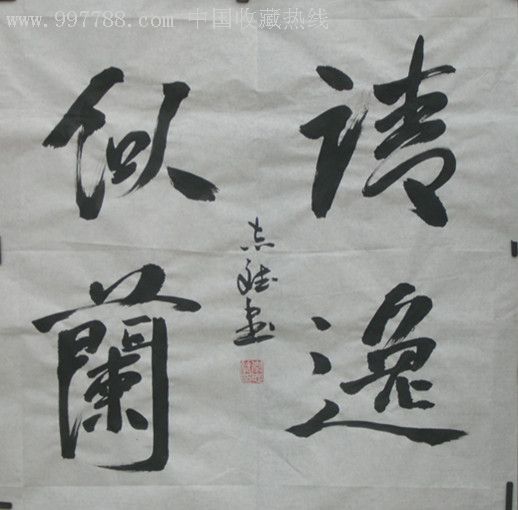 www.997788.com 中国收藏热线
请逸
似蘭